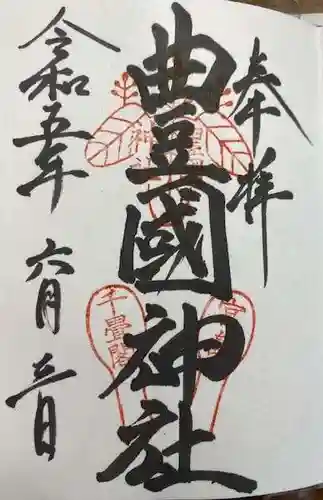 奉拝
豊國神社
千畳閣
令和五年六月三日